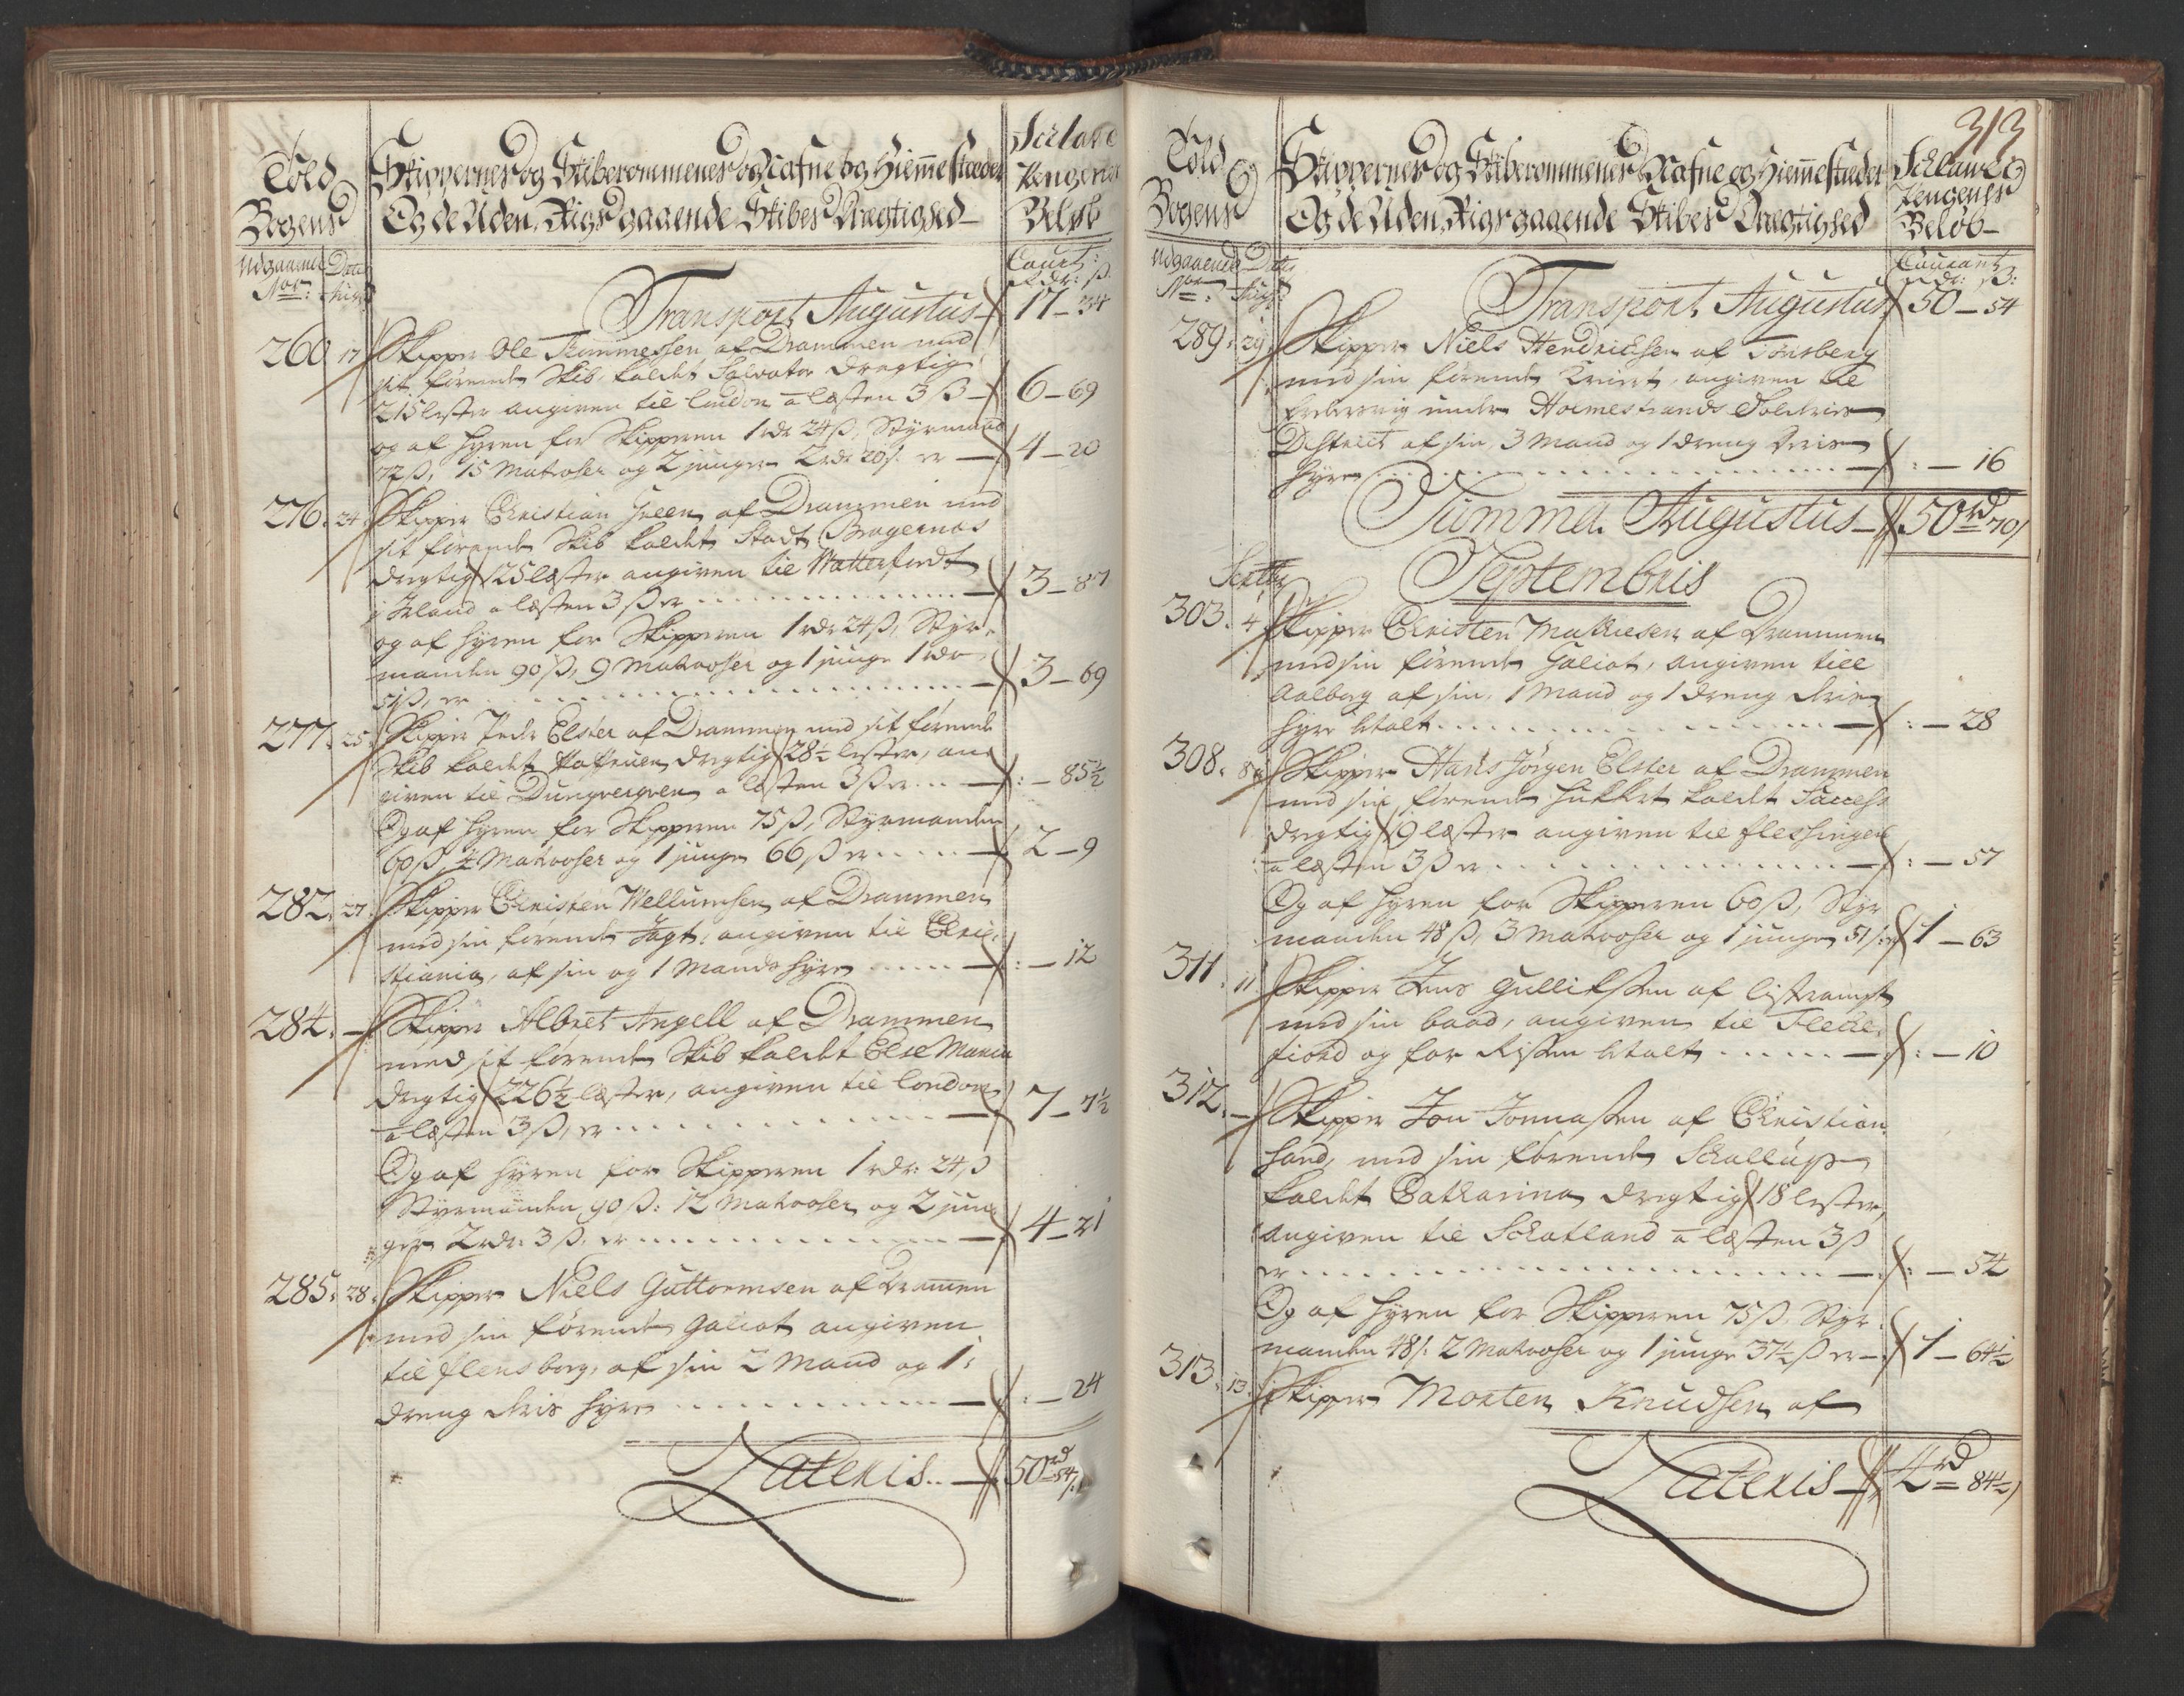 Told
Bogens
Skippernes og Skiberommenes Nafne og Hiemestæder
Og de Uden Rigs gaaende Skibes Drægtighed
Sclave
Pengenes
Beløb
Udgaaende
No:
Dato
Court:
rdr: ß
Transport Augustus 17 - 34
260. 17 Skipper Ole af Drammen med
sit førende Skib kaldet Salvator drægtig
215 lester angiven til London a læsten 3 ß 6 - 69
og af hyren for Skipperen 1 rdr 24 ß, Styrmand
72 ß, 15 Matroser og 2 junger 2 rdr 20 ß er 4 - 20
276. 24. Skipper Christian af Drammen med
sit førende Skib kaldet Stadt Bragernæs
drægtig 125 læster angiven til Watterfordt
i Irland a læsten 3 ß er 3 - 87
og af hyren for Skipperen 1 rdr 24 ß, Styr-
manden 90 ß, 9 Matrooser og 1 junge 1 rdr
51 ß, er 3 - 69
277. 25. Skipper Peder Elster af Drammen med sit førende
Skib kaldet drægtig 28½ lester, an-
given til a læsten 3 ß er : - 85½
Og af hyren for Skipperen 75 ß, Styrmanden
60 ß, 4 Matrooser og 1 junge 66 ß er 2 - 9
282. 27. Skipper Christen Wellumsen af Drammen
med sin førende Jagt, angiven til Chri-
stiania, af sin og 1 Mands hyre : - 12
284. - Skipper Albret Angell af Drammen
med sit førende Skib kaldet Else Maria
drægtig 226½ læster, angiven til London
a læsten 3 ß, er 7 - 7½
Og af hyren for Skipperen 1 rdr: 24 ß
Styrmanden 90 ß: 12 Matrooser og 2 jun-
ger 2 rdr: 3 ß, er 4 - 21
285. 28. Skipper Niels Guttormsen af Dramen
med sin førende Galiot angiven
til Flensborg, af sin 2 Mand og 1
dreng hyre : - 24
Lateris 50 rd 54 ß
313
Told
Bogens
Skippernes og Skiberommenes Nafne og Hiemestæder
Og de Uden Rigs gaaende Skibes Drægtighed
Sclawe
Pengenes
Beløb
Udgaaende
No:
Dato
Aug:
Courant
rdr: ß:
Transport Augustus 50 - 54
289. 29 Skipper Niels Hendrichsen af Tønsberg
med sin førende angiven til
under Holmestrands Tolderies
District af sin, 3 Mand og 1 dreng
hyre : - 16
Summa Augustus 50 rd 70 ß
Septembris
Septbr
303. 4 Skipper Christen Mathiesen af Drammen
med sin førende Galiot, angiven till
Aalborg af sin, 1 Mand og 1 dreng
hyre betalt : - 28
308. 8 Skipper Hans Jørgen Elster af Drammen
med sin førende Hukkert kaldet Success
drægtig 19 læster angiven til Flessingen
a læsten 3 ß er : - 57
Og af hyren for Skipperen 60 ß, Styr
manden 48 ß, 3 Matrooser og 1 junge 51 ß er 1 - 63
311. 11 Skipper Jens Gulliksen af
med sin baad, angiven til Flecke-
fiord og for betalt : - 10
312. - Skipper Jon Jonnassen af Christian
sand, med sin førende Schallup
kaldet Catharina drægtig 18 lester,
angiven til Schatland a læsten 3 ß
er : - 54
Og af hyren for Skipperen 75 ß, Styr
manden 48 ß: 2 Matrooser og 1 junge 37½ ß er 1 - 64½
313. 13. Skipper Morten Knudsen af
Lateris 4 rd 84½ ß